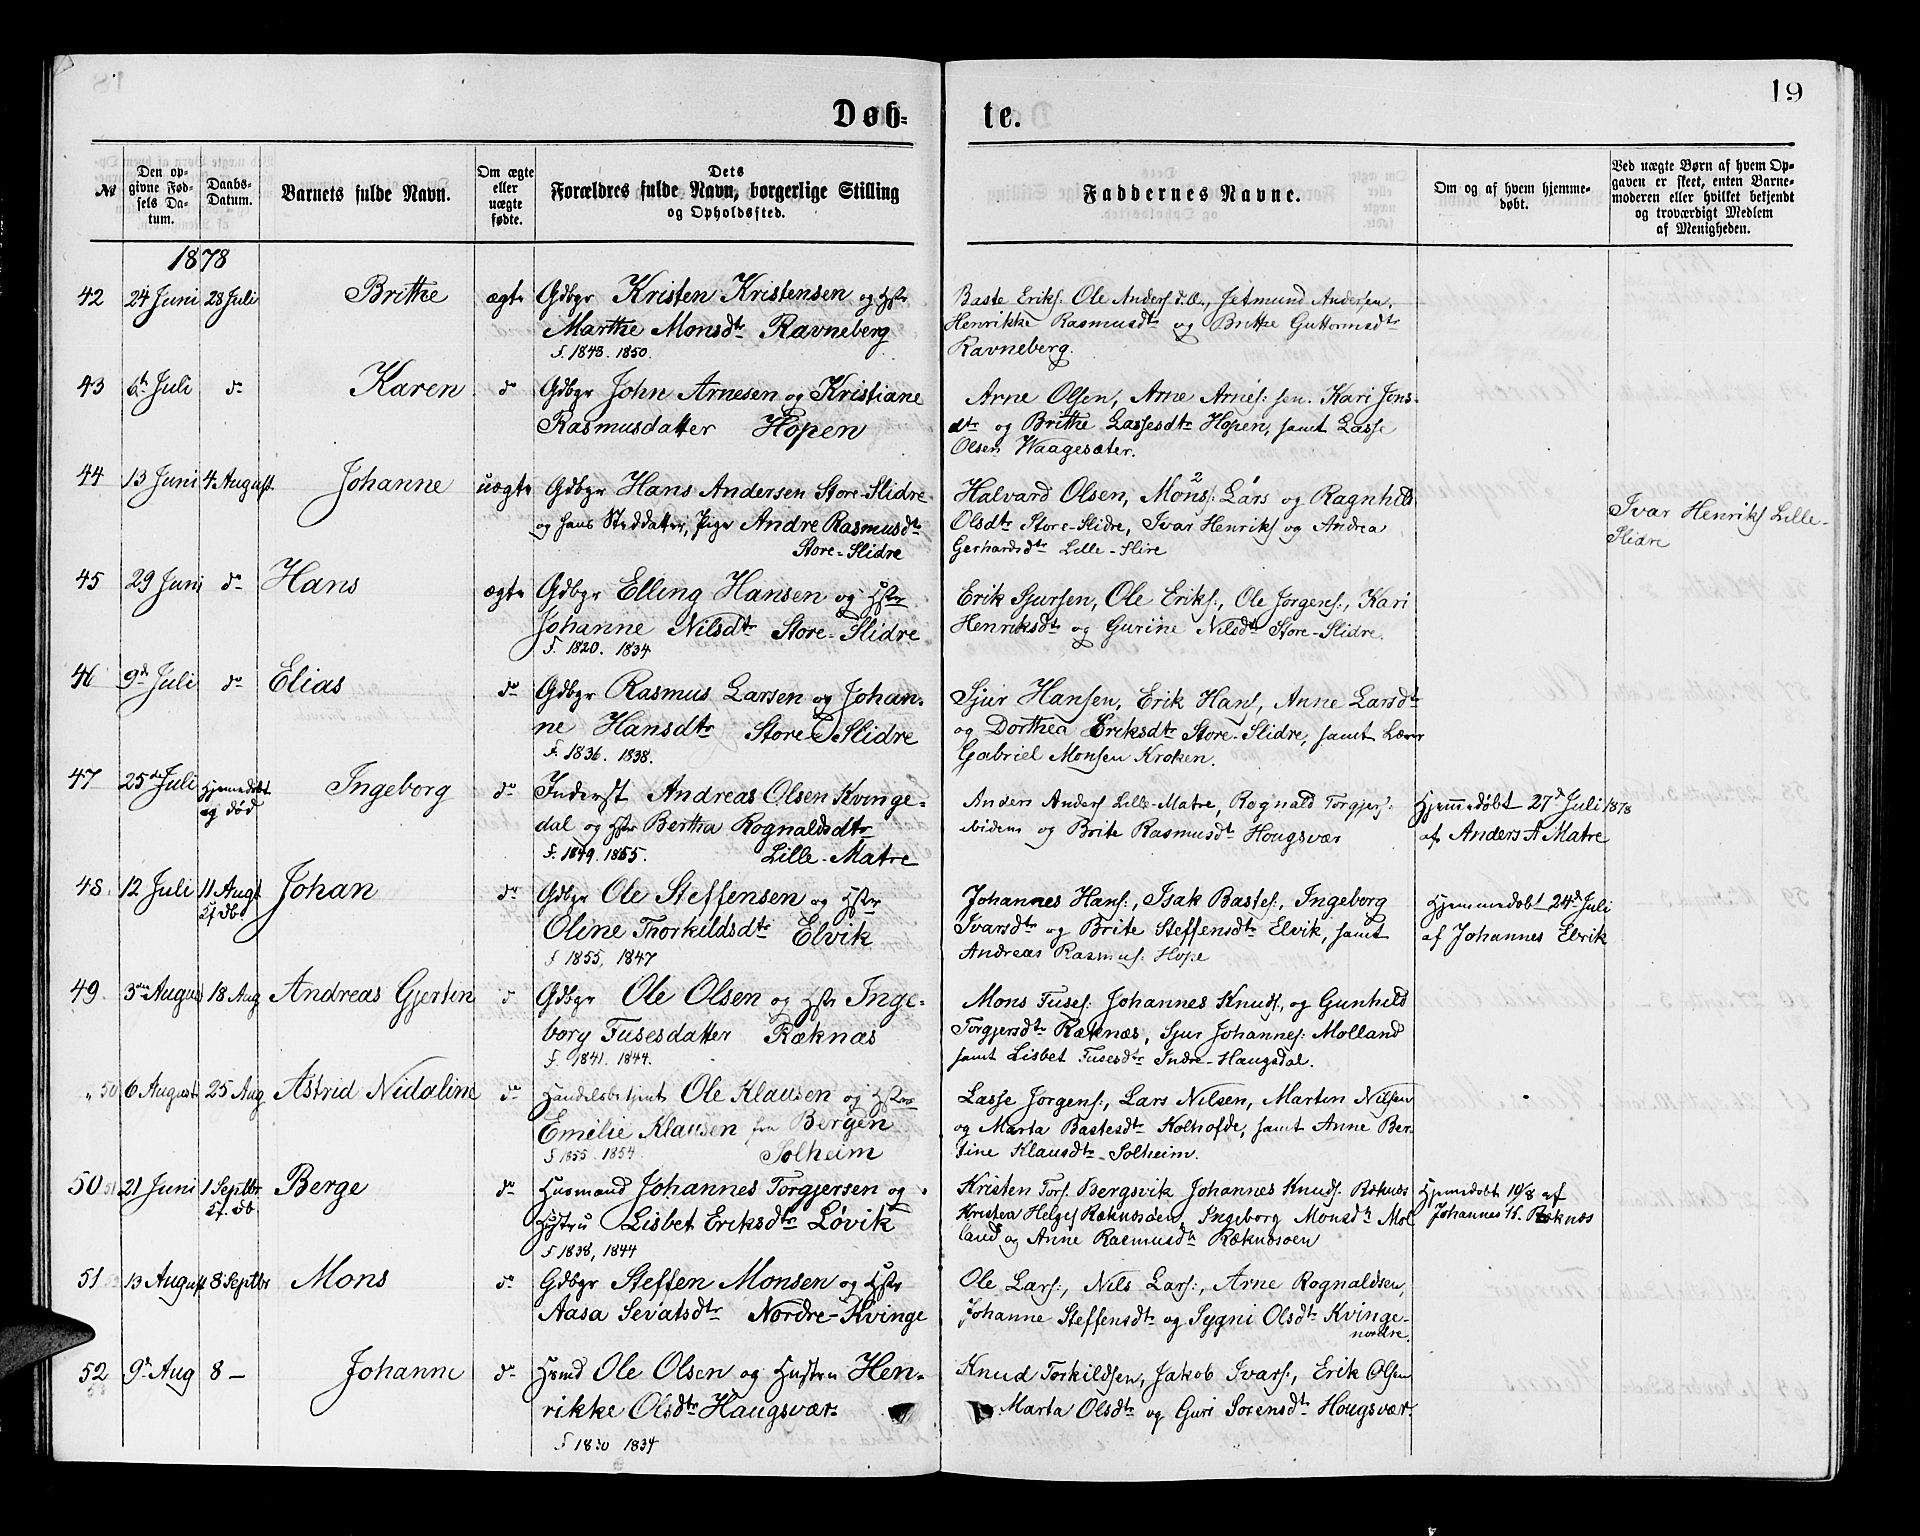 19
Døb-
te.
№
Den op-
givne Fød-
sels Da-
tum.
Daabs-
Datum.
Barnets fulde Navn.
Om ægte
eller
uægte
fødte.
Dets
Forældres fulde Navn, borgerlige Stilling
og Opholdssted.
Faddernes Navne.
Om og af hvem hjemme-
døbt.
Ved uægte Børn af hvem Op-
gaven er skeet, enten Barne-
moderen eller hvilket bekjendt
og troværdigt Medlem
af Menigheden.
1878
42 24 Juni 28 Juli Brithe ægte Gdbgr Kristen Kristensen og Hstr
Marthe Monsdtr Ravneberg
f. 1848. 1850.
Baste Eriks: Ole Anders d.æ., Jetmund Andersen,
Henrikke Rasmusdtr og Brithe Guttormsdtr
Ravneberg.
43 6te Juli do Karen do Gdbgr John Arnesen og Kristiane
Rasmusdatter Hopen
Arne Olsen, Arne Arnes: sen. Kari Jons-
dtr og Brithe Lassesdtr Hopen, samt Lasse
Olsen Waagesæter.
44 13 Juni 4 August. Johanne uægte Gdbgr Hans Andersen Store-Slidre
og hans Steddatter, Pige Andre Rasmusdtr
Store-Slidre
Halvard Olsen, Mons: Lars og Ragnhild
Olsdtr Store-Slidre, Ivar Henriks og Andrea
Gerhardsdtr Lille-Slire
Ivar Henriks Lille-
Slidre
45 29 Juni do Hans ægte Gdbgr Elling Hansen og Hstr
Johanne Nilsdtr Store-Slidre
f. 1820. 1834
Erik Sjursen, Ole Eriks:, Ole Jørgens:, Kari
Henriksdtr og Gurine Nilsdtr Store-Slidre.
46 9de Juli do Elias do Gdbgr Rasmus Larsen og Johan-
ne Hansdtr Store-Slidre
f. 1836. 1838.
Sjur Hansen, Erik Hans, Anne Larsdtr
og Dorthea Eriksdtr Store-Slidre, samt Lærer
Gabriel Monsen Kroken.
47 25de Juli Hjemmedøbt
og død Ingeborg do Inderst Andreas Olsen Kvinge-
dal og Hstr Bertha Rognaldsdtr
f. 1849. 1855. Lille-Matre
Anders Anders Lille-Matre, Rognald Torgjers:
ibidem og Brite Rasmusdtr Hougsvær
Hjemmedøbt 27de Juli 1878
af Anders A Matre
48. 12 Juli 11 Augt
Kf. db. Johan do Gdbgr Ole Steffensen og Hstr
Oline Thorkildsdtr Elvik
f 1855, 1847
Johannes Hans:, Isak Bastes:, Ingeborg
Ivarsdtr og Brite Steffensdtr Elvik, samt
Andreas Rasmus: Hope
Hjemmedøbt 24de Juli
af Johannes Elvik
49. 3die August 18 Aug Andreas Gjerten d Gdbgr Ole Olsen og Hstr Inge-
borg Tusesdatter Ræknæs
f. 1841. 1844.
Mons Tuses: Johannes Knuds, og Gunhild
Torgjersdtr Ræknæs, Sjur Johannes: Molland
samt Lisbet Tusesdtr Indre-Haugsdal.
50 6 August 25 Aug Astrid Nidaline do Handelsbetjent Ole Klausen og Hstr
Emilie Klausen fra Bergen
f 1855. 1854. Solheim
Lasse Jørgens:, Lars Nilsen, Martin Nilsen
og Marta Bastesdtr Kolhofde, samt Anne Ber-
tine Klausdtr Solheim.
50 51 21 Juni 1 Septbr
Kf. db Berge do Husmand Johannes Torgjersen og
Hystru Lisbet Eriksdtr Løvik
f 1838, 1844
Kristen Tors: Bergsvik Johannes Knuds: Ræknes
Kristen Helges Ræknæsøen, Ingeborg Monsdtr Mol
land og Anne Rasmusdtr Ræknæsøen
Hjemmedøbt 10/8 af
Johannes K. Ræknæs
51 13 August 8 Septbr Mons do Gdbgr Steffen Monsen og Hstr
Aasa Sevatsdtr Nordre-Kvinge
Ole Lars:, Nils Lars:, Arne Rognaldsen,
Johanne Steffensdtr og Sygni Olsdtr Kvinge-
nordre.
52 9de Aug 8 — Johanne do Hsmd Ole Olsen og Hustru Hen-
rikke Olsdtr Haugsvær.
f 1830 1834
Knud Torkildsen, Jakob Ivars:, Erik Olsen
Marta Olsdtr og Guri Sørensdtr Hougsvær.